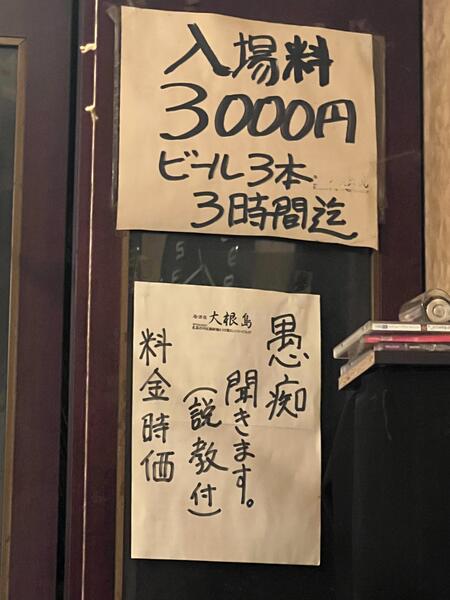 入場料
3000円
ビール3本
3時間迄
居酒屋 大根島
愚痴
聞きます。
(説教付)
料金時価